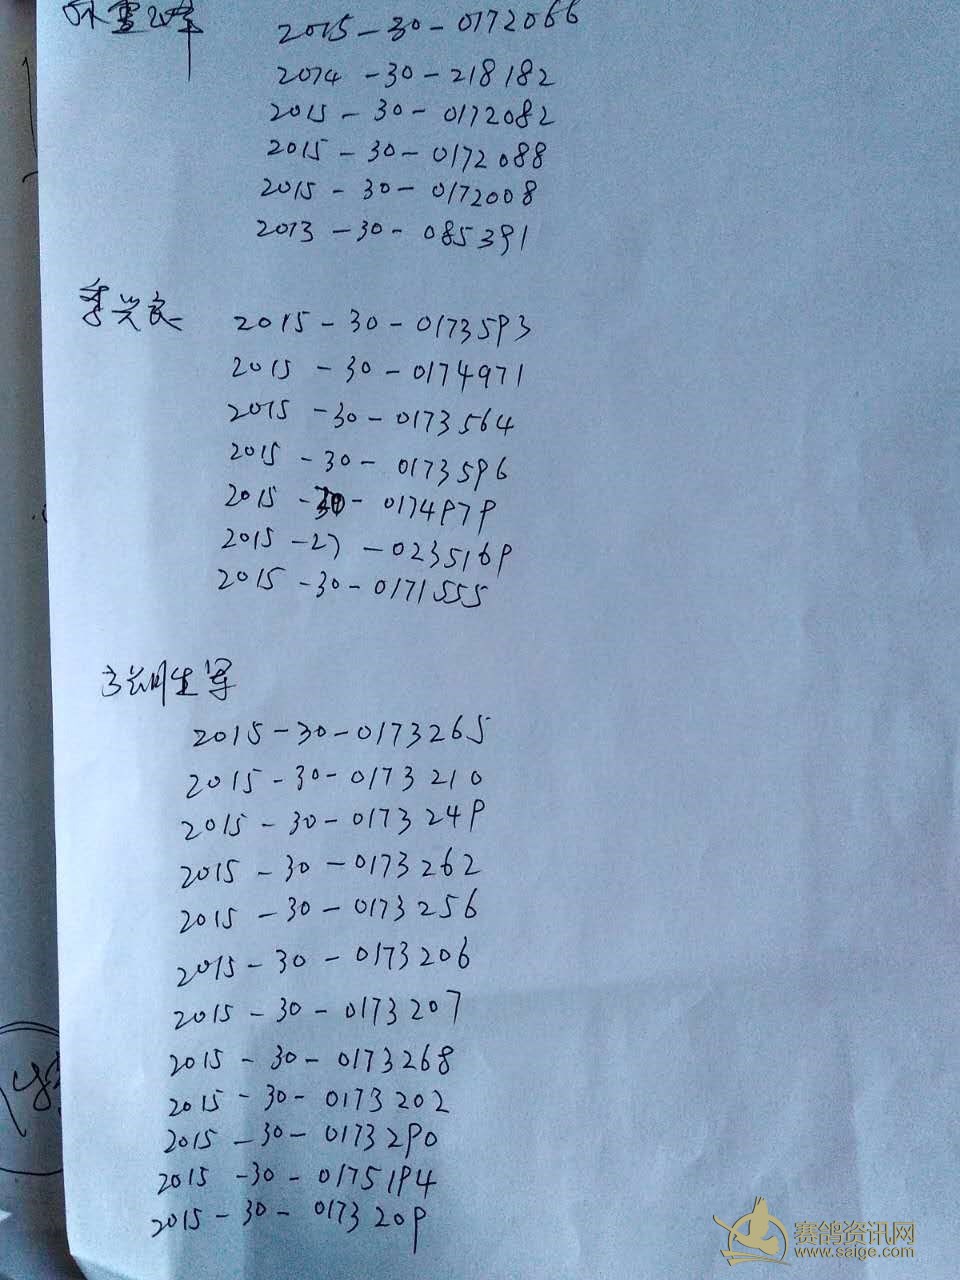 2015-30-0172066
2014-30-218182
2015-30-0172082
2015-30-0172088
2015-30-0172008
2013-30-085391
季兴良 2015-30-0173593
2015-30-0174971
2015-30-0173564
2015-30-0173596
2015-30-0174979
2015-27-0235169
2015-30-0171555
生军
2015-30-0173265
2015-30-0173210
2015-30-0173249
2015-30-0173262
2015-30-0173256
2015-30-0173206
2015-30-0173207
2015-30-0173268
2015-30-0173202
2015-30-0173290
2015-30-0175194
2015-30-0173209
赛鸽资讯网
www.saige.com